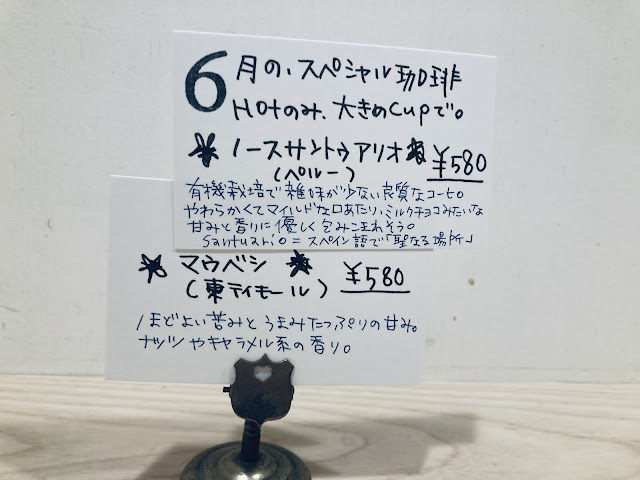 6月の、スペシャル珈琲
Hotのみ、大きめcupで。
ノースサントゥアリオ ¥580
(ペルー)
有機栽培で雑味が少ない良質なコーヒー。
やわらかくてマイルドな口あたり、ミルクチョコみたいな
甘みと香りに優しく包みこまれそう。
Santuario=スペイン語で「聖なる場所」
マウベシ ¥580
(東ティモール)
ほどよい苦みとうまみたっぷりの甘み。
ナッツやキャラメル系の香り。